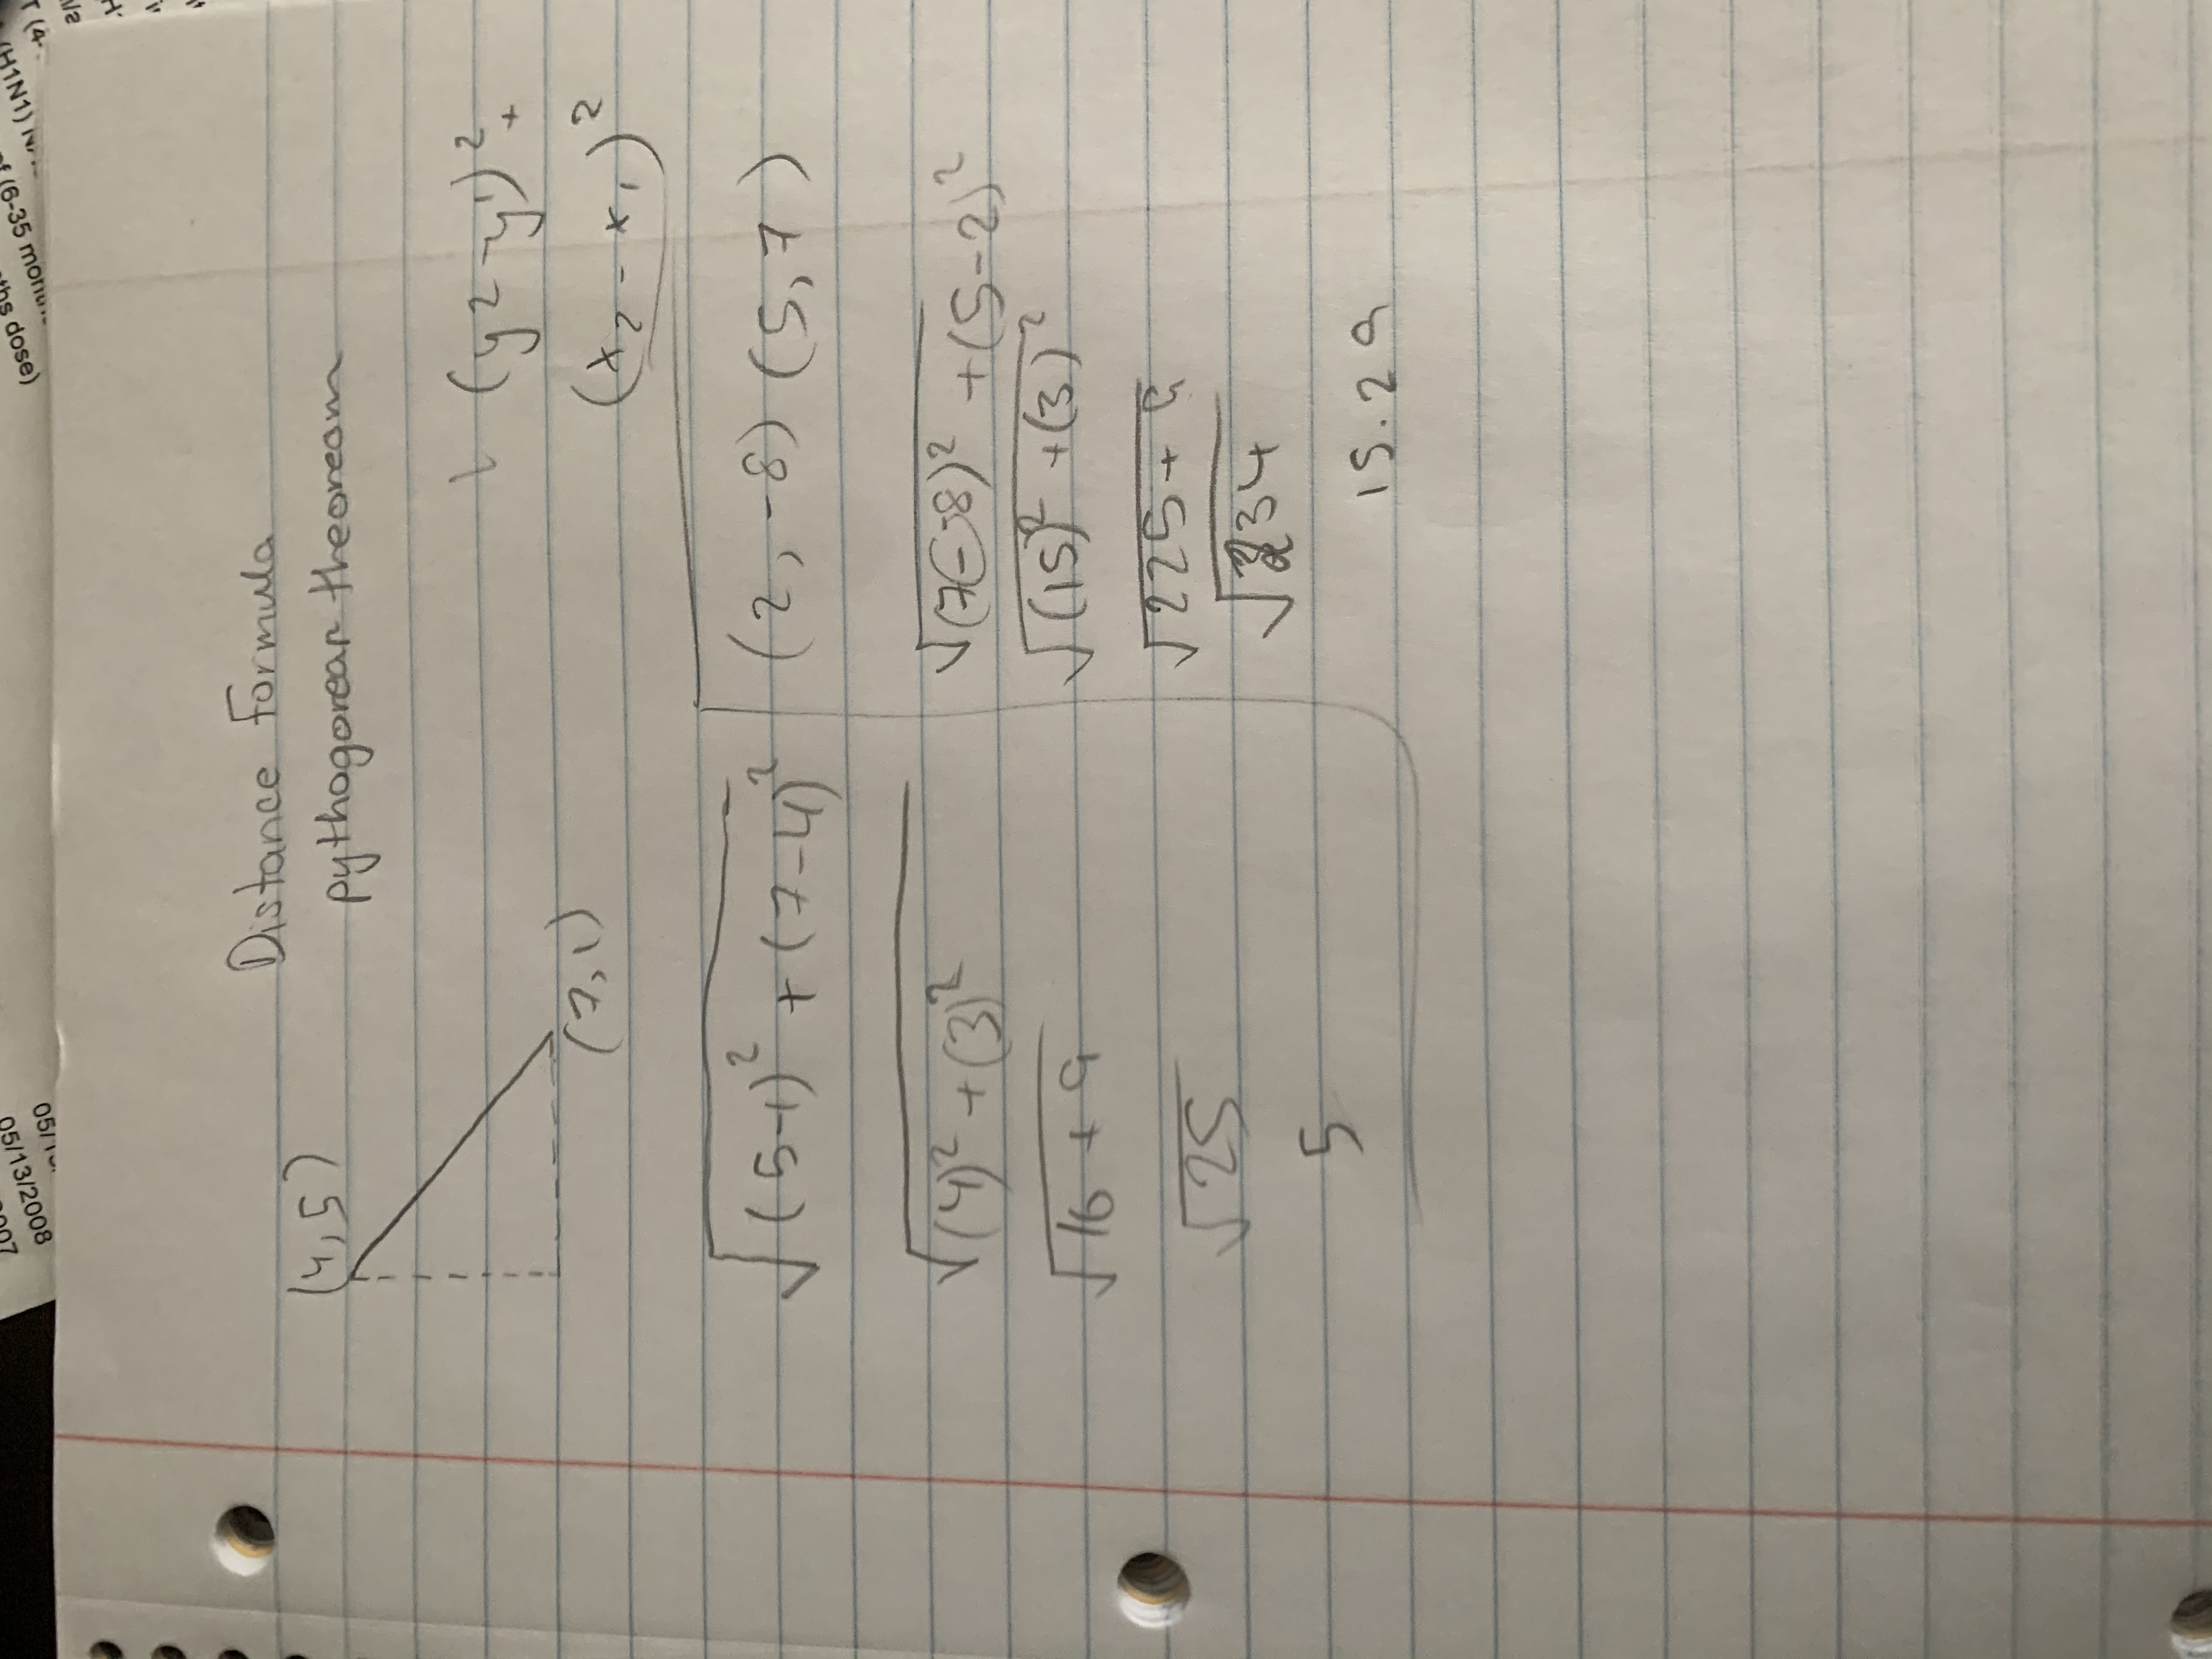 05/13/2008
(6-35 monu
(H1N1)
ths dose)
Distance Formula
pythogorean theoream
(4,5)
(7,1)
(y2-y1)²+
(x₂-x₁)²
√(5-1)²+(7-4)²
√(4)²+(3)²
√16+9
√25
5
(2,-8) (5,7)
√(7--8)²+(5-2)²
√(15)²+(3)²
√225+9
√234
15.29